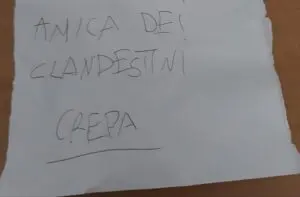 AMICA DEI
CLANDESTINI
CREPA